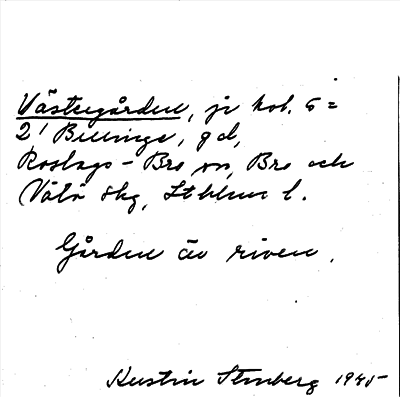 Västergården, jr kol. 5 =
2' Billinge, gd,
Roslags-Bro sn, Bro och
Vätö skg, Sthlms l.
Gården är riven.
Kerstin Stenberg 1945